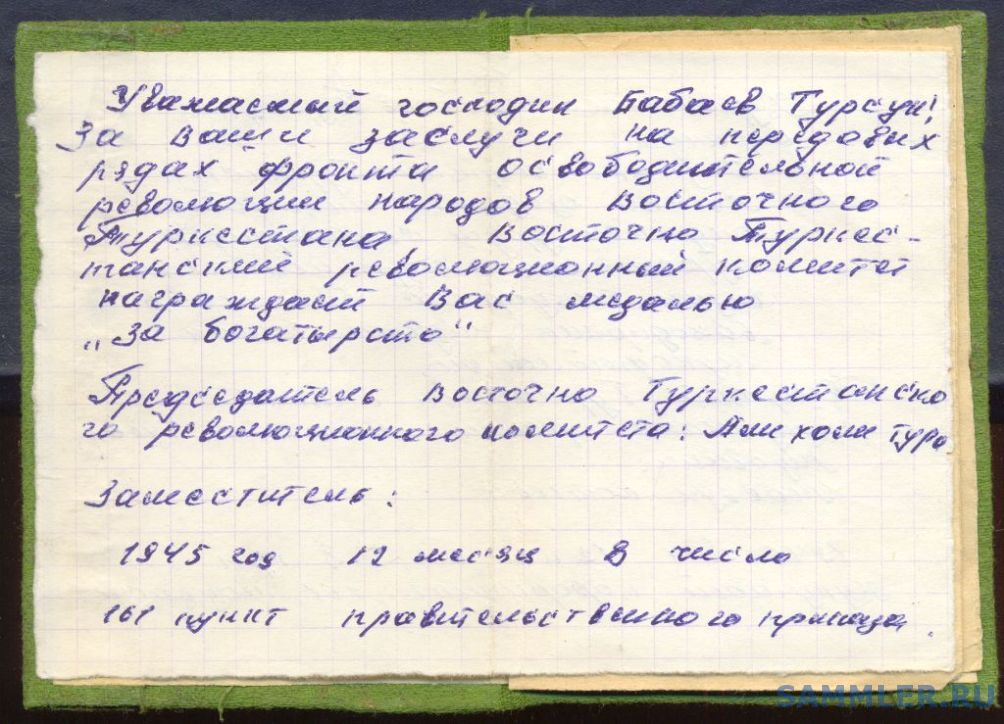 Уважаемый господин Бабаев Турсун!
За ваши заслучи на передових
рядах фронта освободительной
революции народов Восточного
Туркестана, Восточно Туркес-
танский революционный комитет
награждает Вас медалью
„За богатырсто“
Председатель Восточно Туркестанско
го революционного комитета: Али хан тура
Заместитель:
1945 год 12 месяц 8 число
161 пункт правительственного приказа.
SAMMLER.RU